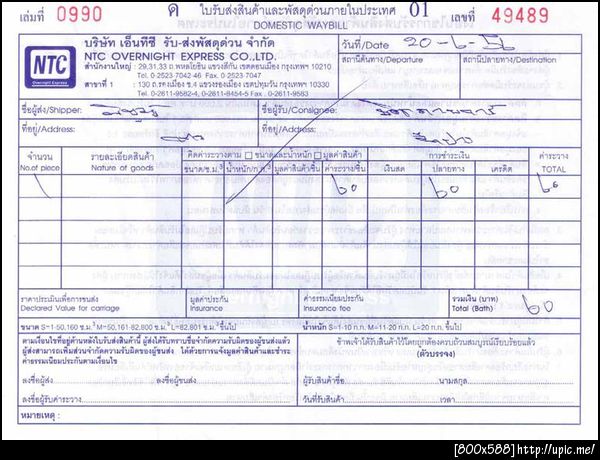 เล่มที่ 0990 ค ใบรับส่งสินค้าและพัสดุด่วนภายในประเทศ 01 เลขที่ 49489
DOMESTIC WAYBILL
NTC
Overnight Express
บริษัท เอ็นทีซี รับ-ส่งพัสดุด่วน จำกัด
NTC OVERNIGHT EXPRESS CO.,LTD.
สำนักงานใหญ่ : 29,31,33 ถ.พหลโยธิน แขวงสีกัน เขตดอนเมือง กรุงเทพฯ 10210
Tel. 0-2523-7042-46 Fax. 0-2523-7047
สาขาที่ 1 : 130 ถ.รองเมือง ซ.4 แขวงรองเมือง เขตปทุมวัน กรุงเทพฯ 10330
Tel. 0-2611-9582-4, 0-2611-9560-2 Fax. 0-2611-9583
วันที่/Date 20-6-56
สถานีต้นทาง/Departure สถานีปลายทาง/Destination
ชื่อผู้ส่ง/Shipper: ชื่อผู้รับ/Consignee:
ที่อยู่/Address: ที่อยู่/Address:
จำนวน รายละเอียดสินค้า คิดค่าระวางตาม ขนาดและน้ำหนัก มูลค่าสินค้า การชำระเงิน ค่าระวาง
No.of piece Nature of goods ขนาด/ซ.ม.³ น้ำหนัก/ก.ก. มูลค่าสินค้า/ชิ้น ค่าระวาง/ชิ้น เงินสด ปลายทาง เครดิต TOTAL
1 60 60 60
ราคาประเมินเพื่อการขนส่ง มูลค่าประกัน ค่าธรรมเนียมประกัน รวมเงิน (บาท) 60
Declared Value for carriage Insurance Insurance fee Total (Bath)
ขนาด S=1-50,160 ซ.ม.³ M=50,161-82,800 ซ.ม.³ L=82,801 ซ.ม.³ขึ้นไป น้ำหนัก S=1-10 ก.ก. M=11-20 ก.ก. L=20 ก.ก. ขึ้นไป
ตามเงื่อนไขที่อยู่ด้านหลังใบรับส่งสินค้านี้ ผู้ส่งได้รับทราบข้อจำกัดความรับผิดของผู้ขนส่งแล้ว
ผู้ส่งสามารถเพิ่มส่วนจำกัดความรับผิดของผู้ขนส่ง ได้ด้วยการแจ้งมูลค่าสินค้าและชำระ
ค่าธรรมเนียมประกันตามเงื่อนไข
ข้าพเจ้าได้รับสินค้าไว้โดยถูกต้องครบถ้วนสมบูรณ์เรียบร้อยแล้ว
(ตัวบรรจง)
ลงชื่อผู้ส่ง ลงชื่อผู้ขนส่ง ผู้รับสินค้าชื่อ นามสกุล
ลงชื่อผู้รับค่าระวาง วันที่รับสินค้า เวลา
หมายเหตุ :
[800x588]http://upic.me/